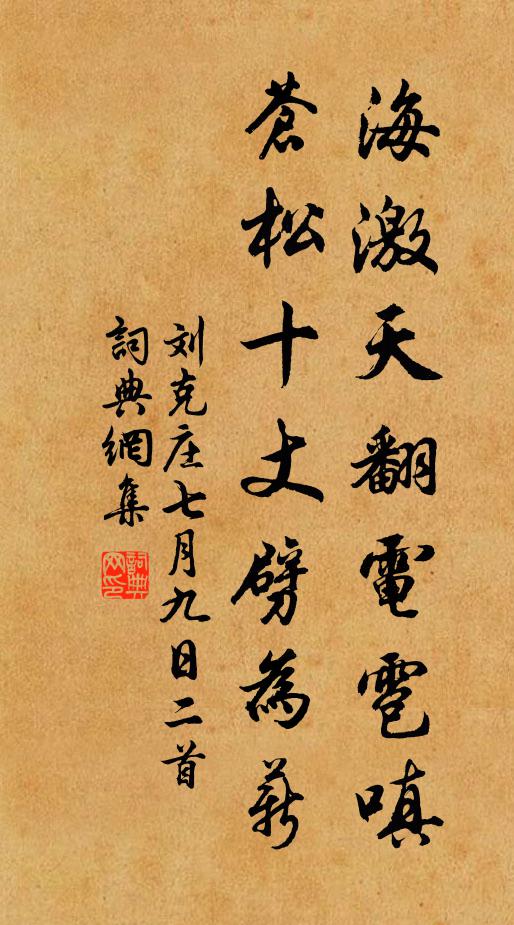 海激天翻電雹嗔
蒼松十丈劈為薪
刘克庄七月九日二首
詞典網集
詞典網印